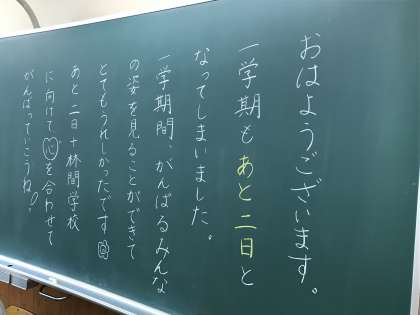 おはようございます。
一学期もあと二日と
なってしまいました。
一学期間、がんばるみんな
の姿を見ることができて
とてもうれしかったです
あと二日+林間学校
に向けて心を合わせて
がんばっていこうね!